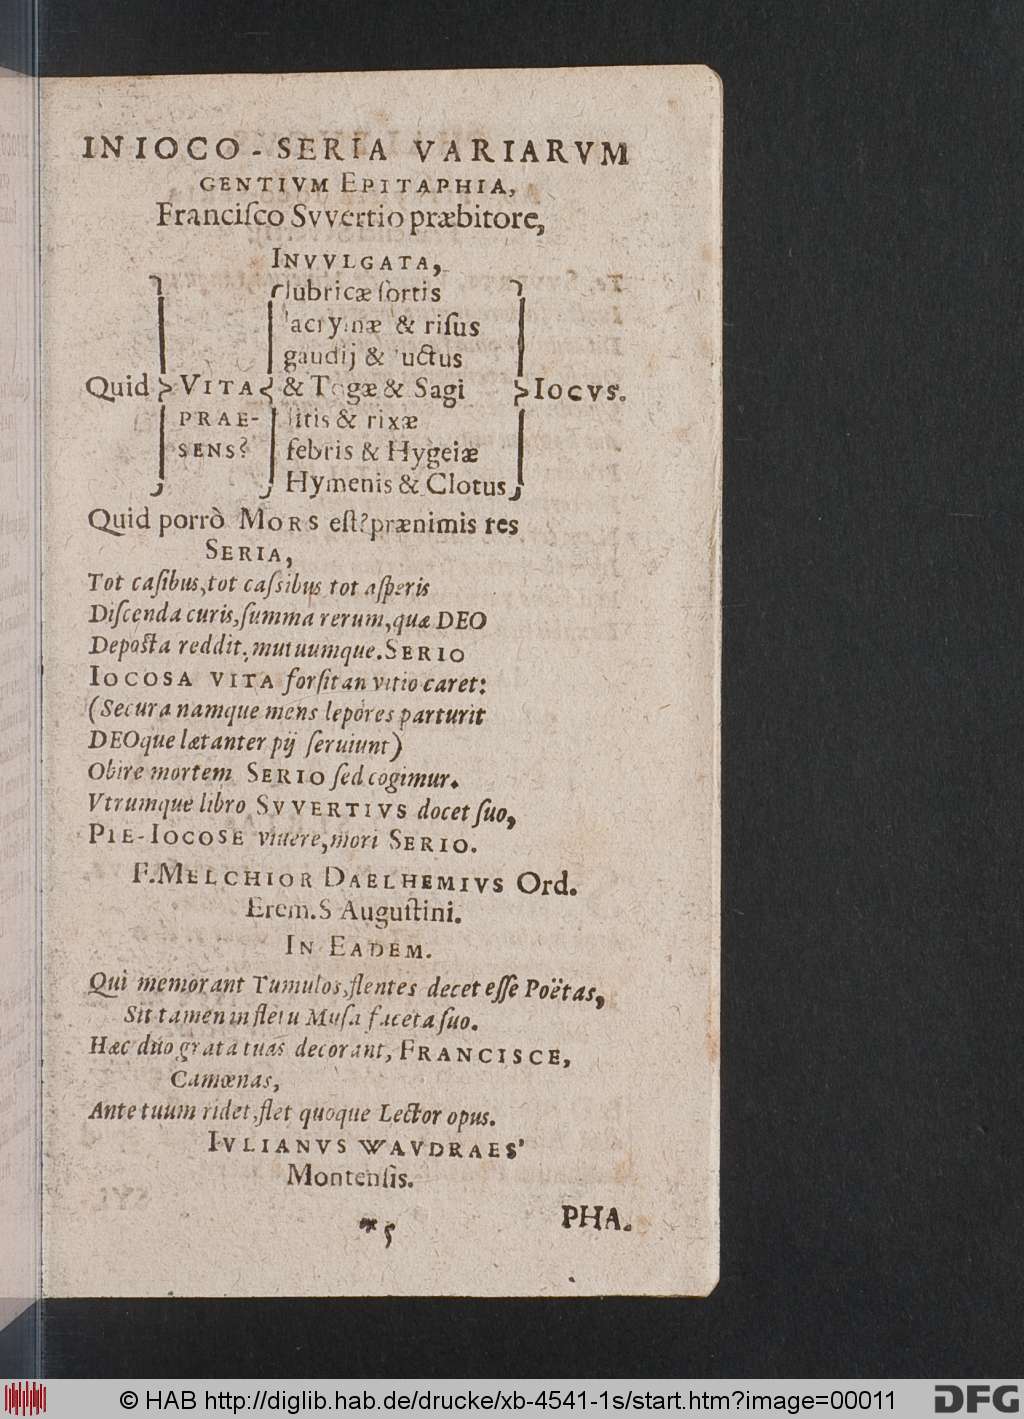 IN IOCO-SERIA VARIARVM
GENTIVM EPITAPHIA,
Franciſco Svvertio præbitore,
INVVLGATA,
lubricæ ſortis
lacrymæ & riſus
gaudij & luctus
Quid VITA & Togæ & Sagi IOCVS.
PRAE- litis & rixæ
SENS? febris & Hygeiæ
Hymenis & Clotus
Quid porrò MORS eſt? prænimis res
SERIA,
Tot caſibus, tot caſsibus tot aſperis
Diſcenda curis, ſumma rerum, quæ DEO
Depoſta reddit, mutuumque. SERIO
IOCOSA VITA forſitan vitio caret:
(Secura namque mens lepóres parturit
DEOque lætanter pij ſeruiunt)
Obire mortem SERIO ſed cogimur.
Vtrumque libro SVVERTIVS docet ſuo,
PIE-IOCOSE viuere, mori SERIO.
F. MELCHIOR DAELHEMIVS Ord.
Erem. S Auguſtini.
IN EADEM.
Qui memorant Tumulos, flentes decet eſſe Poëtas,
Sit tamen in fletu Muſa faceta ſuo.
Hæc duo grata tuas decorant, FRANCISCE,
Camœnas,
Ante tuum ridet, flet quoque Lector opus.
IVLIANVS WAVDRAES'
Montenſis.
** 5 PHA.
© HAB http://diglib.hab.de/drucke/xb-4541-1s/start.htm?image=00011
DFG